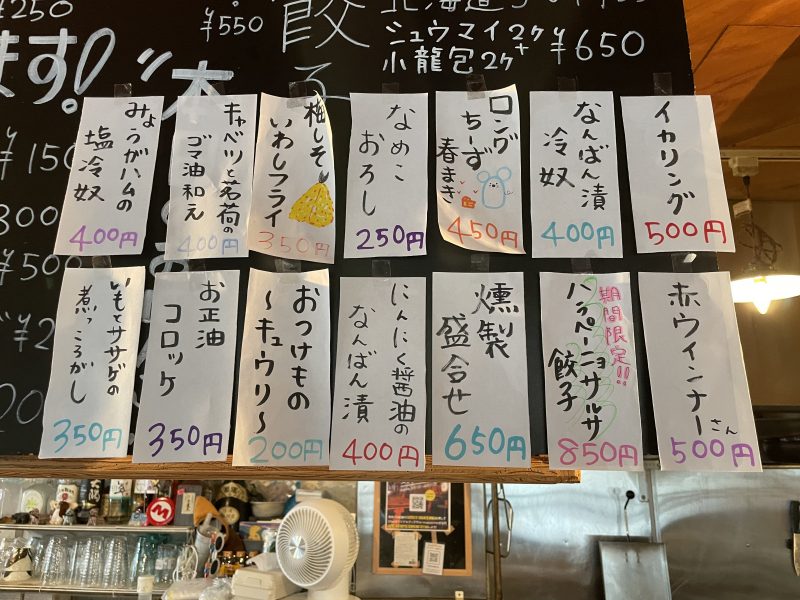 ¥250
¥550
餃子
シュウマイ2ヶ
小龍包2ヶ
¥650
ます!
¥150
300
¥500
イカリング
500円
なんばん漬
冷奴
400円
ロング
ちーず
春まき
450円
なめこ
おろし
250円
梅しそ
いわしフライ
350円
キャベツと茗荷の
ゴマ油和え
400円
みょうがハムの
塩冷奴
400円
赤ウインナーさん
500円
期間限定!!
ハラペーニョサルサ
餃子
850円
燻製
盛合せ
650円
にんにく醤油の
なんばん漬
400円
おつけもの
～キュウリ～
200円
お正油
コロッケ
350円
いもとササゲの
煮っころがし
350円